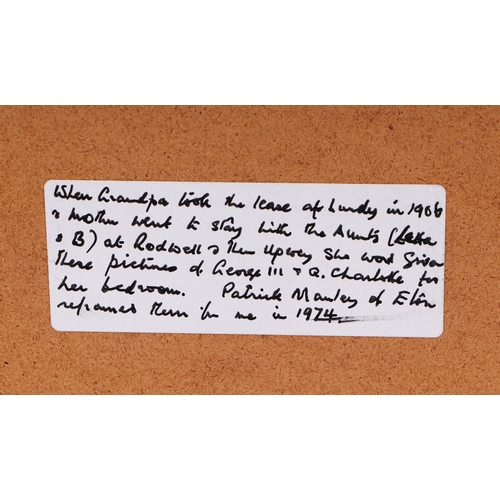 When Grandpa took the lease of Lundy in 1906
& Mother went to stay with the Aunts (
& B) at Rodwell & then Upwey she was given
these pictures of George III & Q. Charlotte for
her bedroom. Patrick Manley of Eton
reframed them for me in 1974